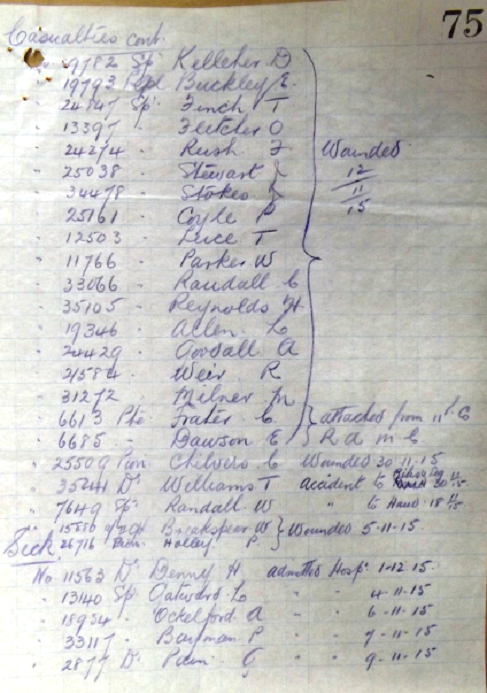 75
Casualties cont.
" 19782 Sp. Kelleher D
" 19793 Buckley E.
" 24847 Sp. Finch T
" 13397 " Fletcher O
" 24274 " Rush F Wounded
" 25038 " Stewart J 12
" 34478 " Stokes J 11
" 25161 " Coyle P 15
" 12503 " Luce T
" 11766 " Parker W
" 33066 " Randall C
" 35105 " Reynolds H
" 19346 " Allen. L
" 24429 " Goodall A
" 21584 " Weir R
" 31272 " Milner M
" 6613 Pte Frater C } attached from 11th
" 6685 - Dawson E } R A M C
" 25509 Pion. Chilvers C Wounded 30.11.15
" 35241 D. Williams T accident to 30 11 15
" 7649 Sp. Randall W " to Hand 18 11 15
" 15550 Breakspear W } Wounded 5-11-15
Sick 26716 Pion. Holley P.
No 11563 D. Denny H admitted Hosp. 1-12-15
" 13140 Sp. L " " 4-11-15
" 18954 - Ockelford A " " 6-11-15
" 33117 - Bayman P " " 7-11-15
" 2877 D. G " " 9-11-15